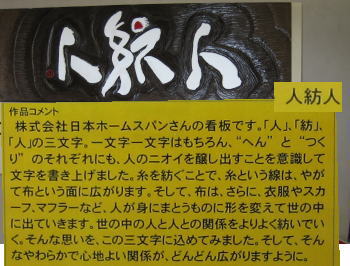 人紡人
人紡人
作品コメント
株式会社日本ホームスパンさんの看板です。「人」、「紡」、
「人」の三文字。一文字一文字はもちろん、“へん” と “つく
り” のそれぞれにも、人のニオイを醸し出すことを意識して
文字を書き上げました。糸を紡ぐことで、糸という線は、やが
て布という面に広がります。そして、布は、さらに、衣服やスカ
ーフ、マフラーなど、人が身にまとうものに形を変えて世の中
に出ていきます。世の中の人と人との関係をよりよく紡いでい
く。そんな思いを、この三文字に込めてみました。そして、そん
なやわらかで心地よい関係が、どんどん広がりますように。